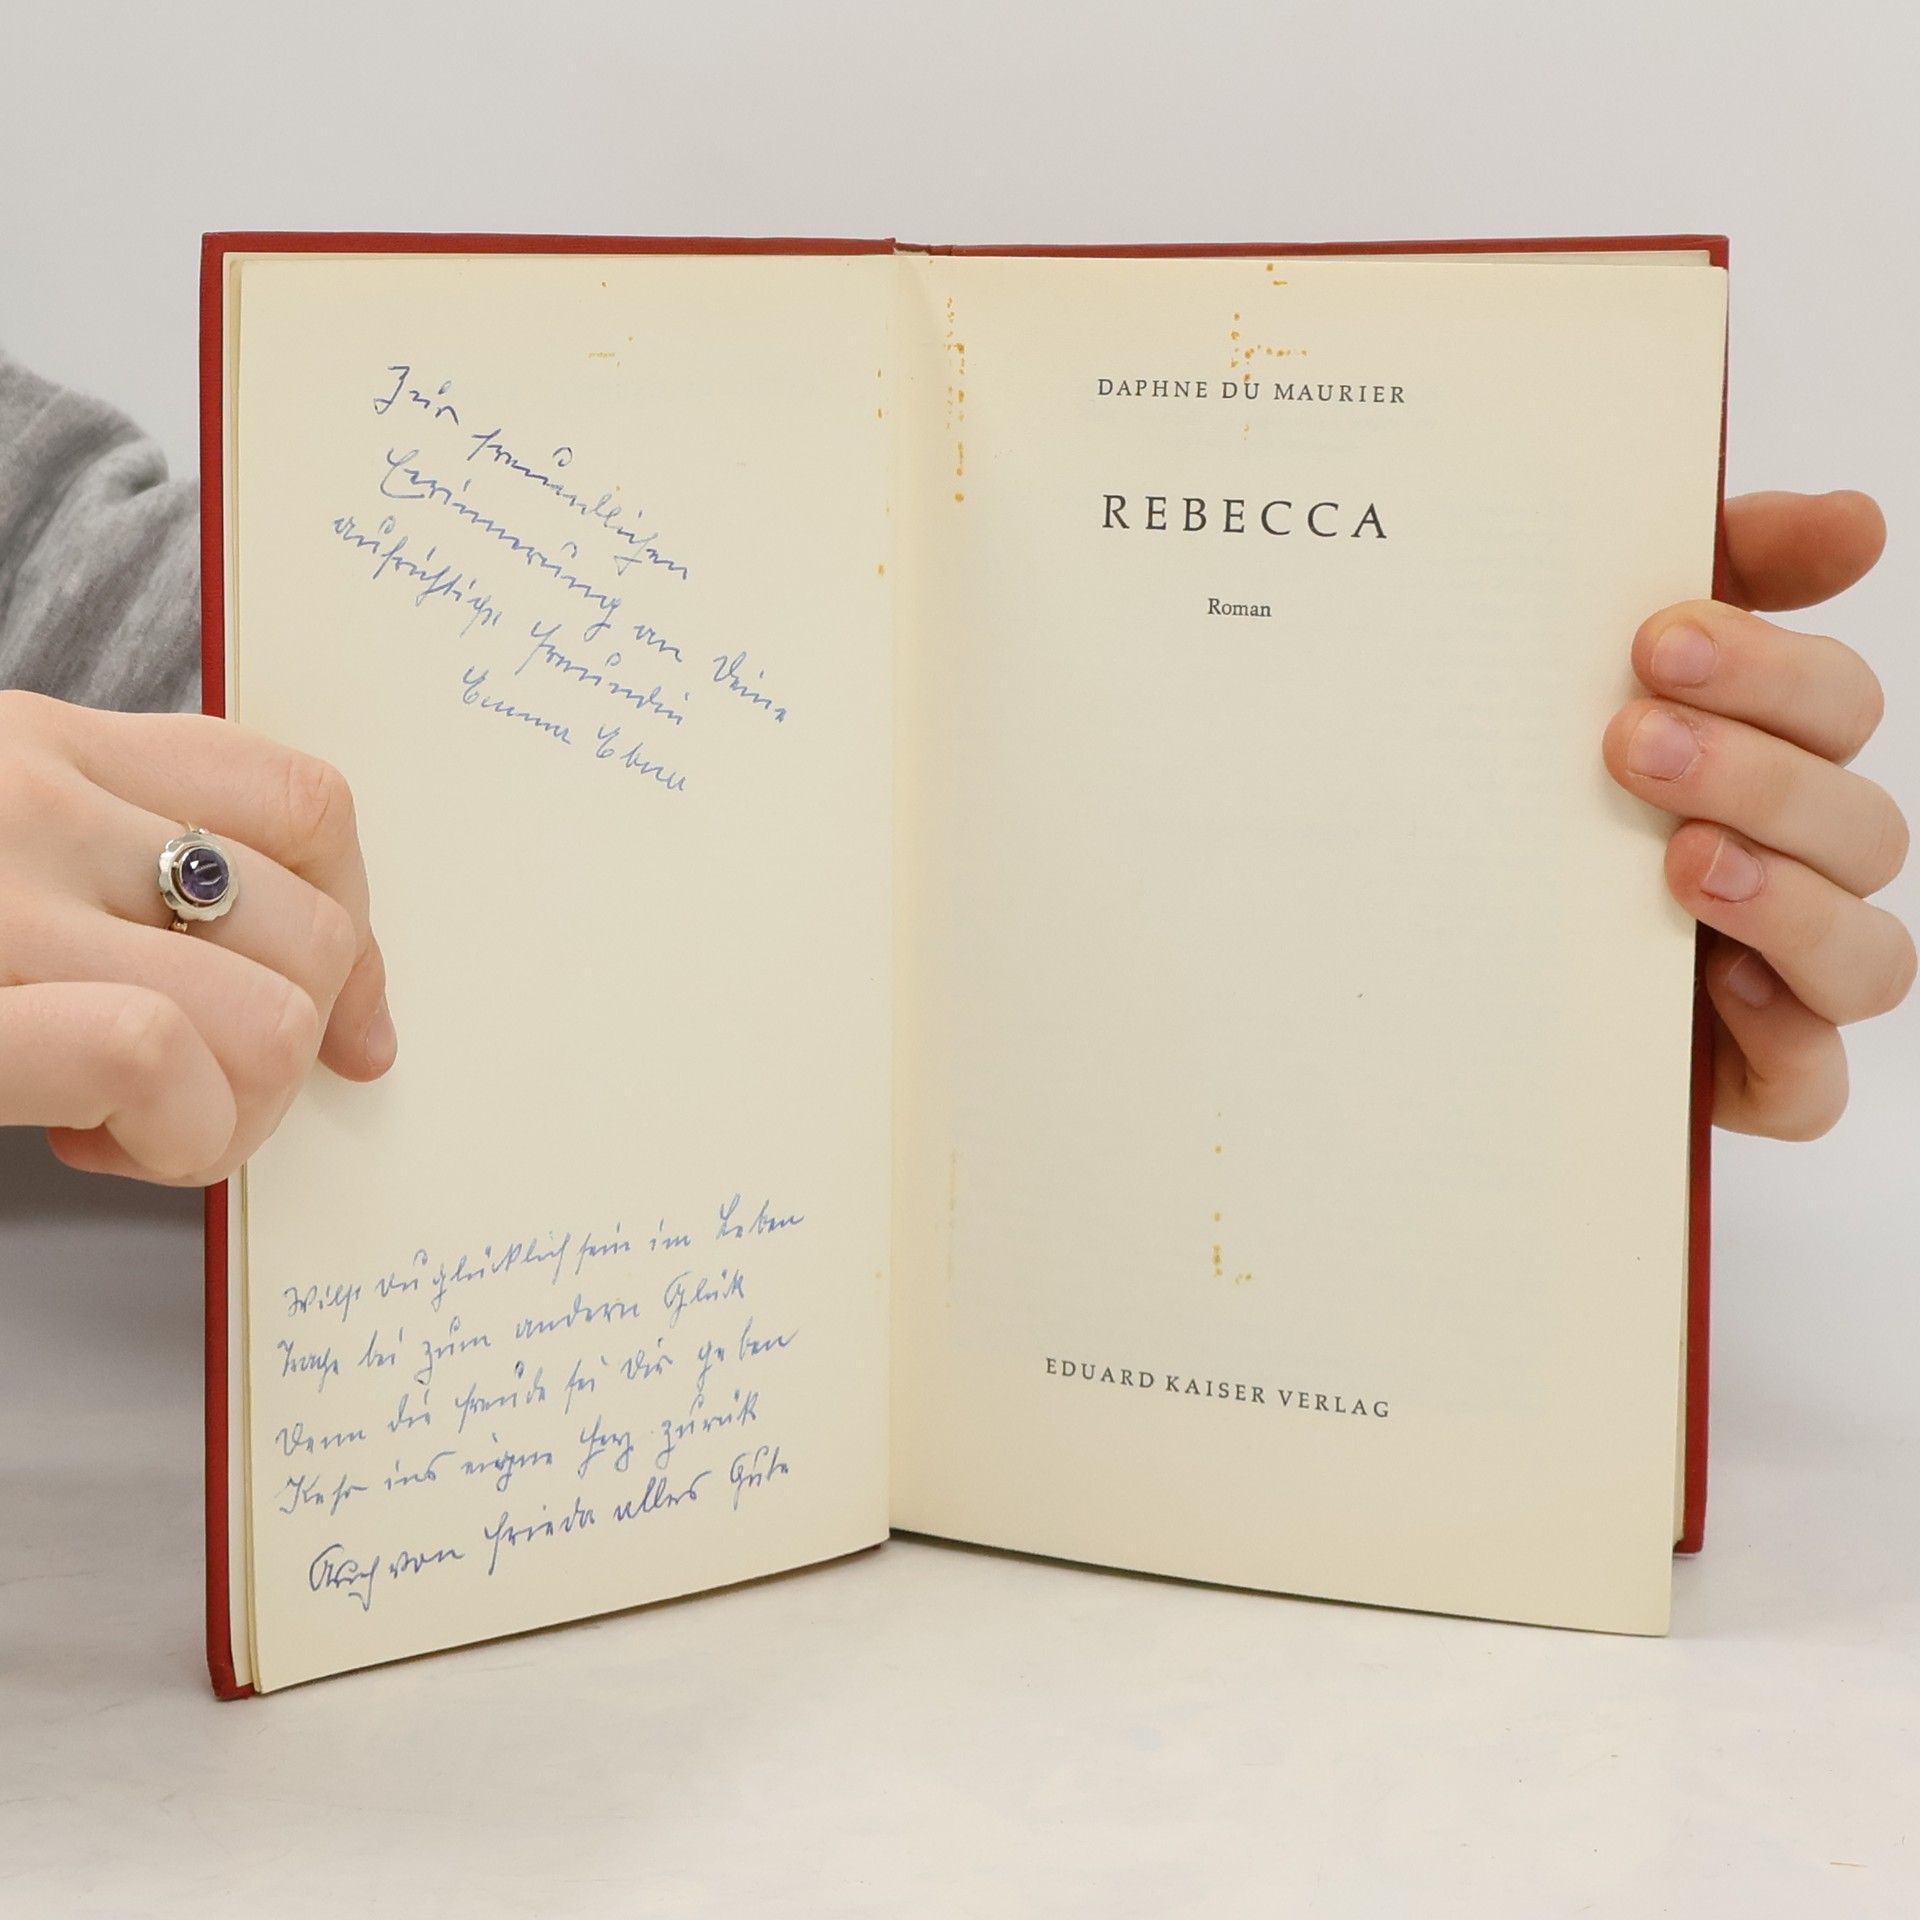 Zur freundlichen
Erinnerung an Deine
aufrichtige Freundin
Emma
Willst du glücklich sein im Leben
Trage bei zum andern Glück
Denn die Freude sei Dir geben
Kehr ins eigne Herz zurück
Auch von Frieda alles Gute
DAPHNE DU MAURIER
REBECCA
Roman
EDUARD KAISER VERLAG